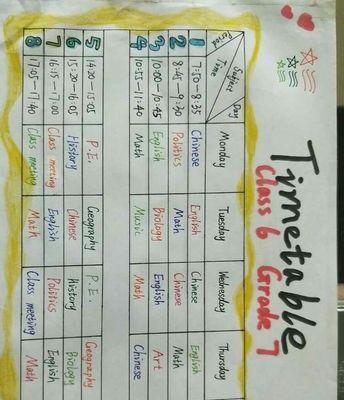 Timetable
Class 6 Grade 7
Period Time Subject Day Monday Tuesday Wednesday Thursday
1 7:50-8:35 Chinese English Chinese English
2 8:45-9:30 Politics Math Chinese Math
3 10:00-10:45 English Biology English Art
4 10:55-11:40 Math Music Math Chinese
5 14:20-15:05 P.E. Geography P.E. Geography
6 15:20-16:05 History Chinese History Biology
7 16:15-17:00 Class meeting English Politics English
8 17:05-17:40 Class meeting Math Class meeting Math